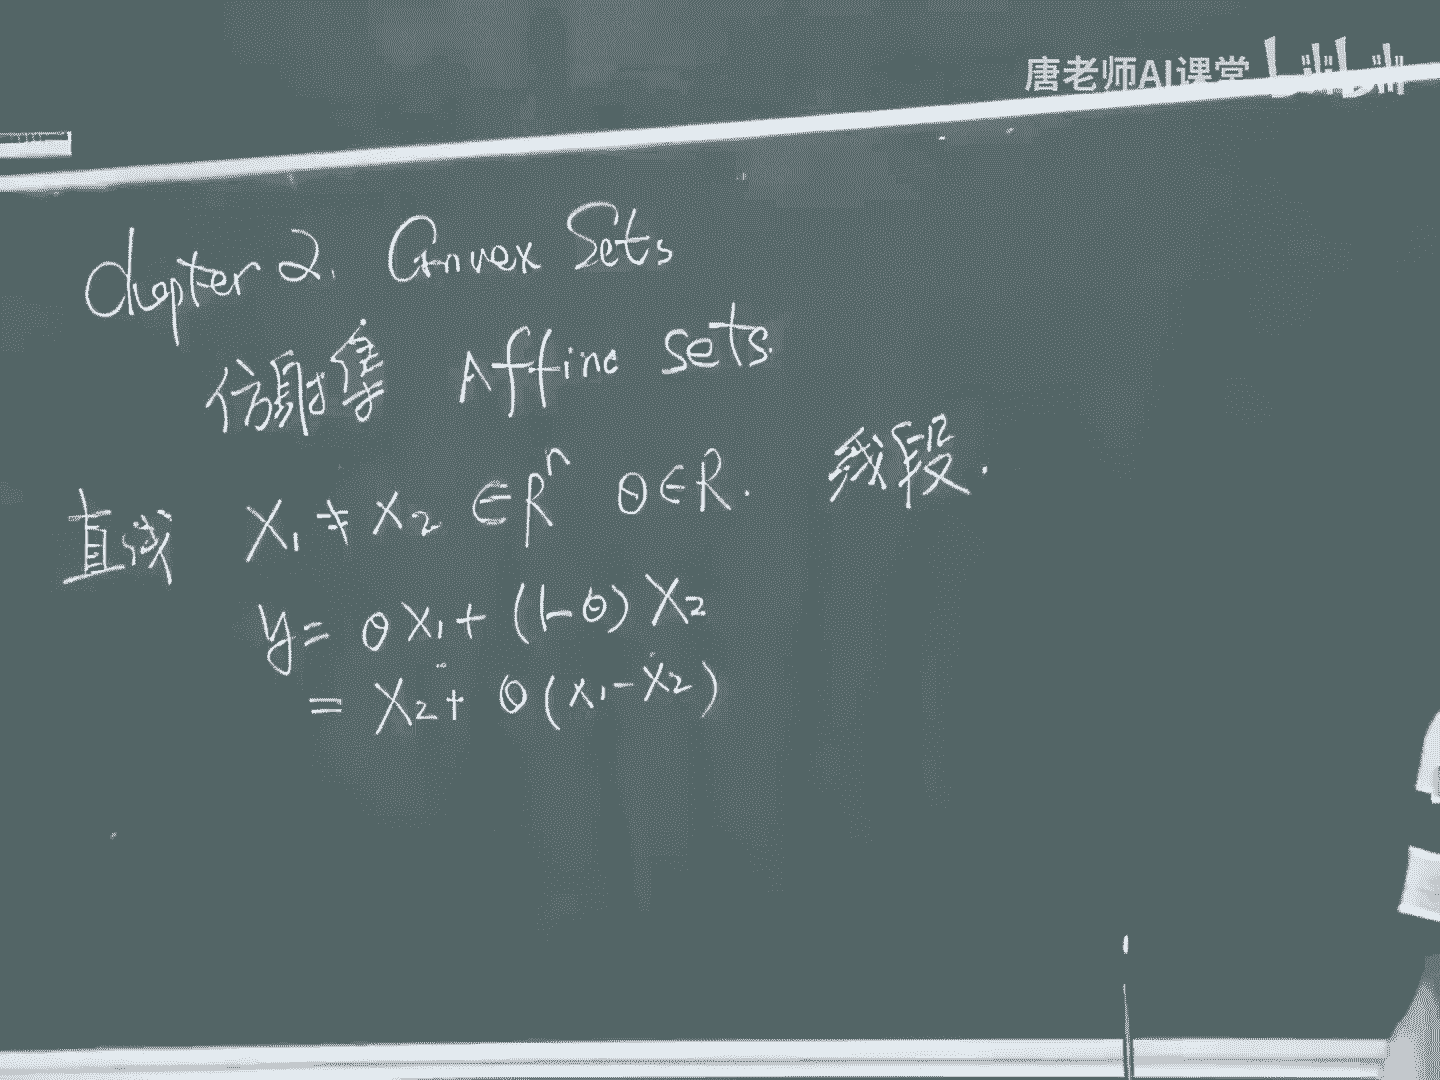 唐老师AI课堂 bilibili
Chapter 2. Convex Sets
仿射集 Affine sets.
直线 X₁ ≠ X₂ ∈ Rⁿ θ∈R. 线段.
y = θX₁ + (1-θ) X₂
= X₂ + θ(X₁-X₂)